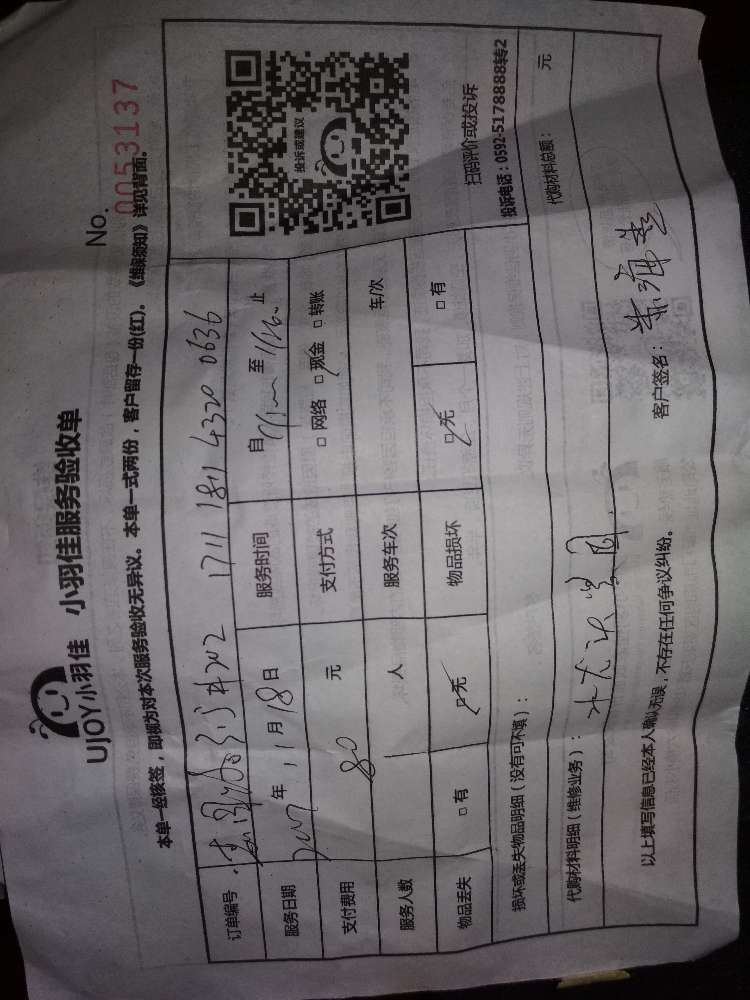 UJOY小羽佳 小羽佳服务验收单
No. 0053137
本单一经核签，即视为对本次服务验收无异议。本单一式两份，客户留存一份(红)。《维保须知》详见背面。
订单编号 1711 1811 4320 0636
服务日期 2017 年 11 月 18 日 服务时间 自 至 止
支付费用 80 元 支付方式 □ 网络 □ 现金 □ 转账
服务人数 人 服务车次 车/次
物品丢失 □ 有 □ 无 物品损坏 □ 无 □ 有
投诉或建议
扫码评价或投诉
投诉电话：0592-5178888转2
损坏或丢失物品明细（没有可不填）：
代购材料明细（维修业务）： 代购材料总额： 元
以上填写信息已经本人确认无误，不存在任何争议纠纷。 客户签名：